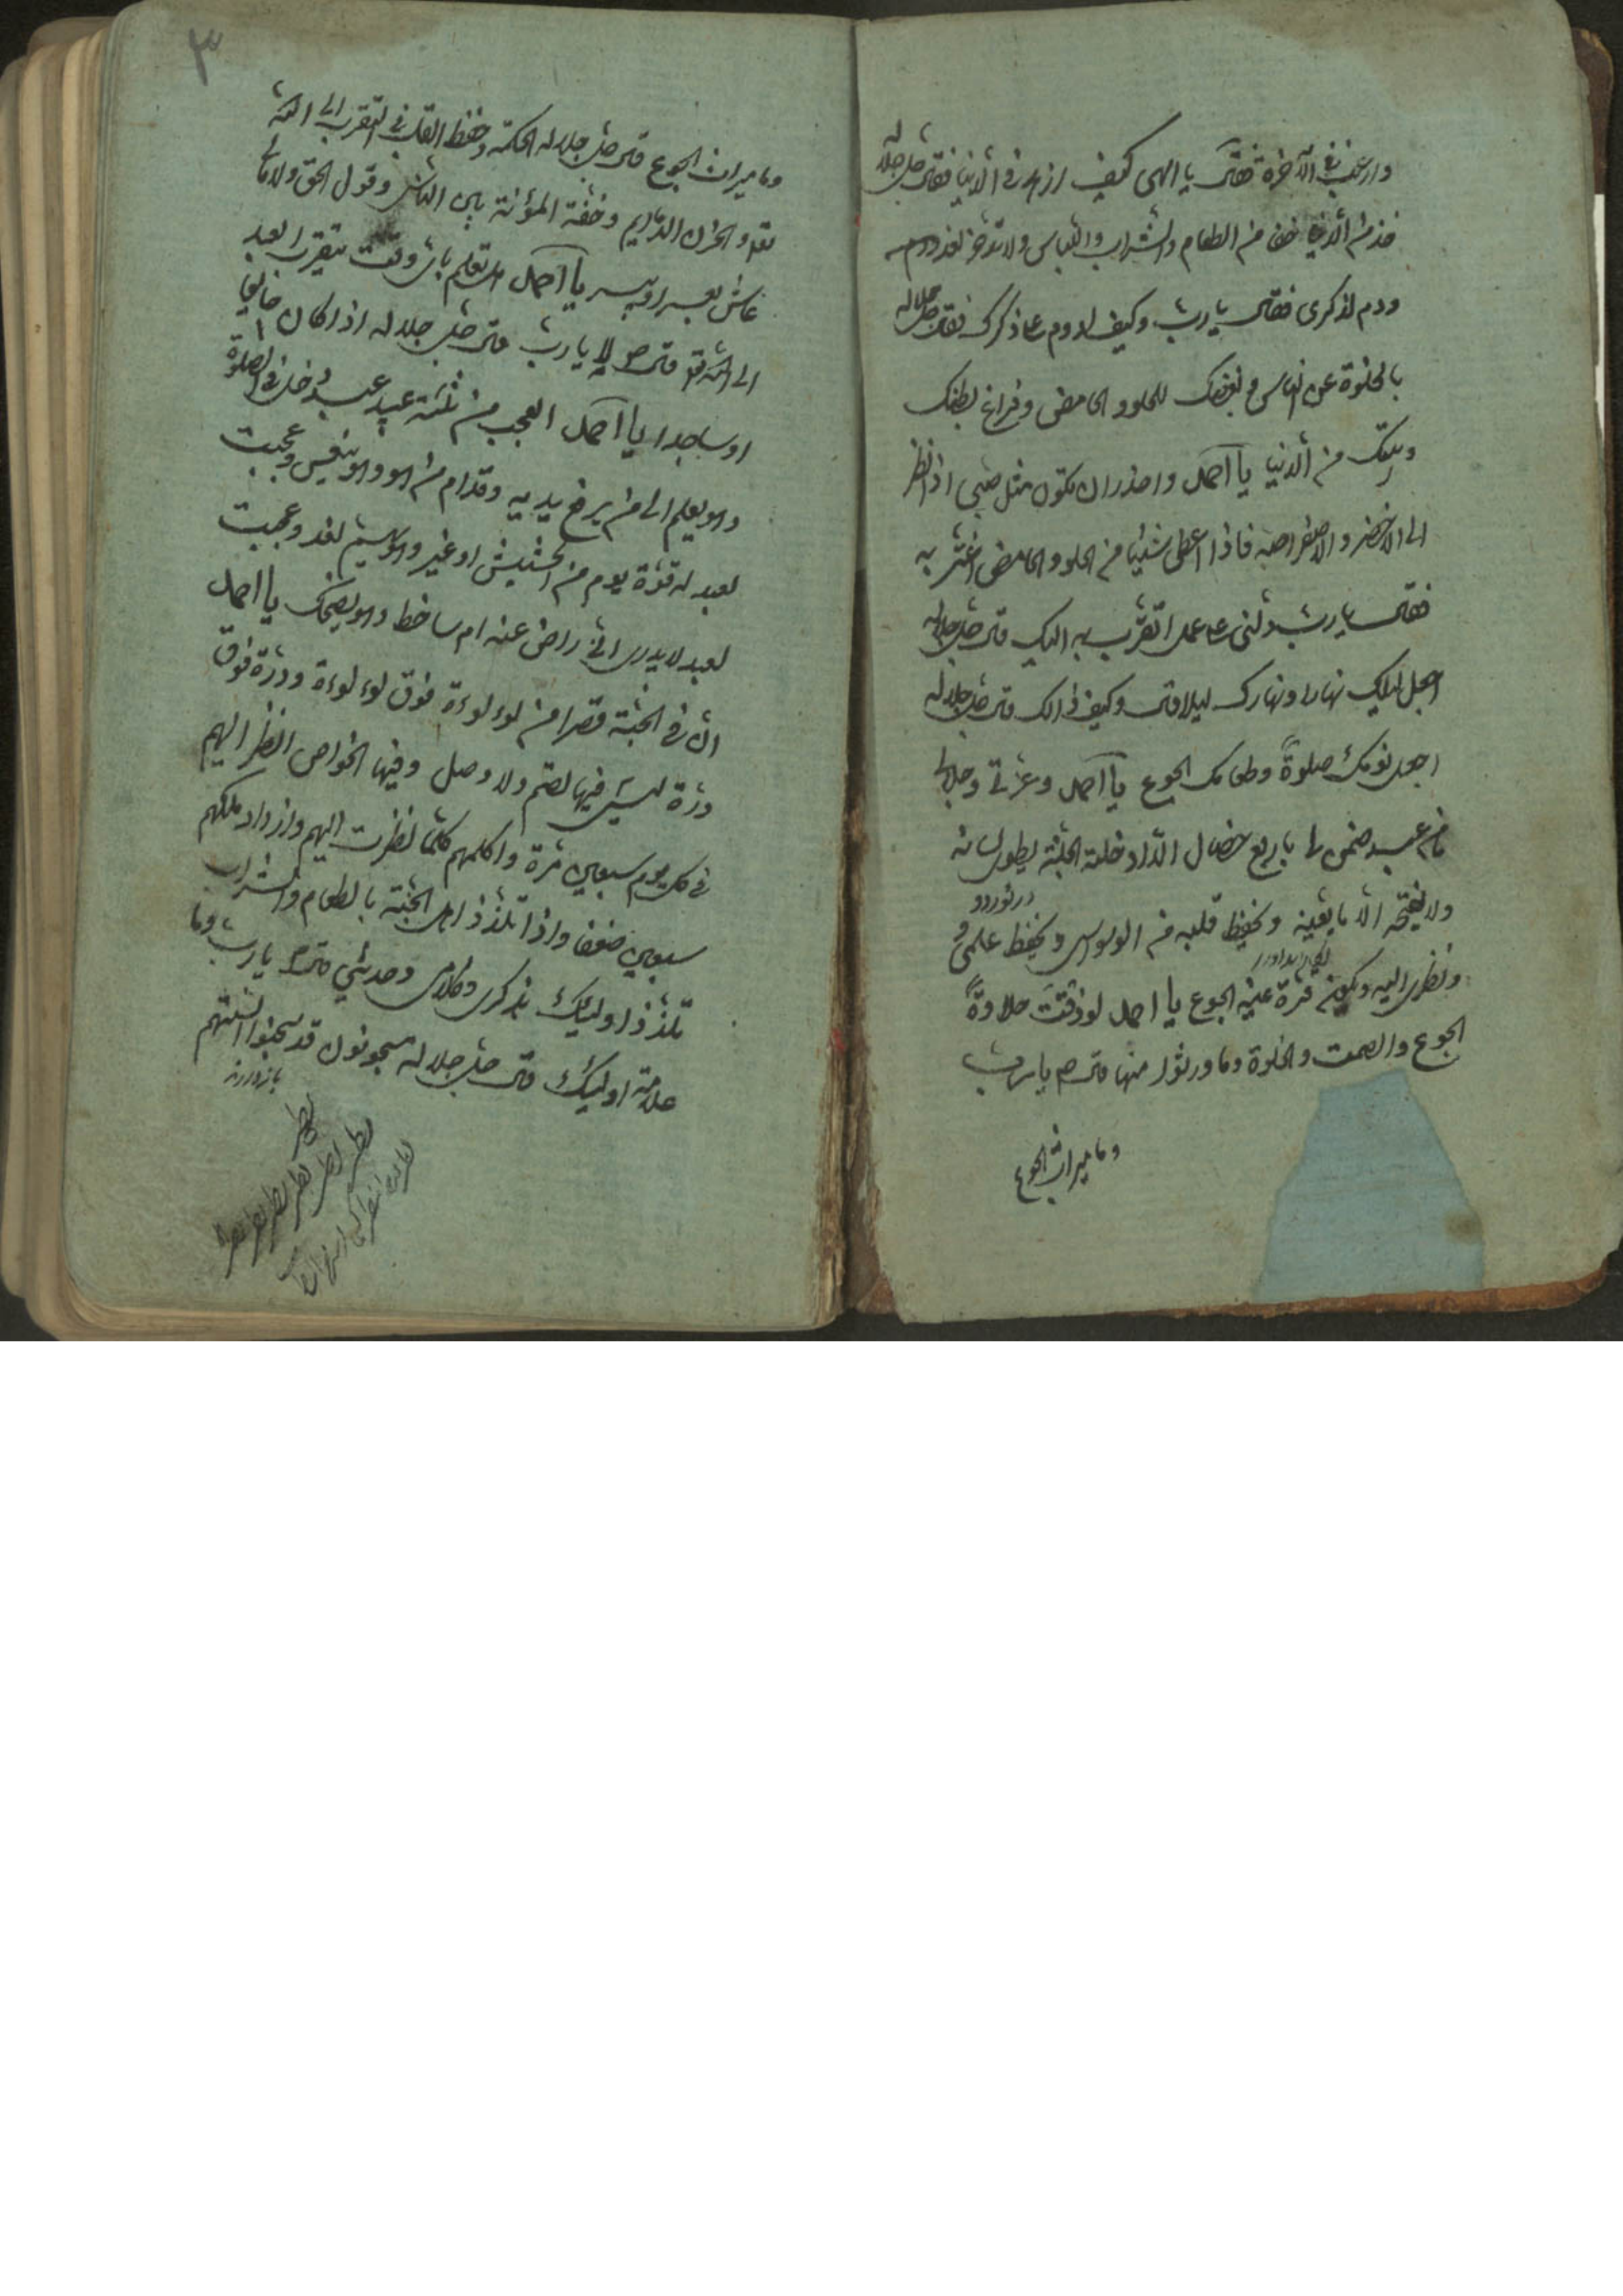 وارغب في الآخرة فقال يا الهى كيف ازهد في الدنيا فقال جل جلاله
خذ من الدنيا خفا من الطعام والشراب واللباس ولا تدخر لغد ودم
ودم لذكرى فقال يا رب وكيف ادوم على ذكرك فقال جل جلاله
بالخلوة عن الناس وبغضك للحلو والحامض وفراغ بطنك
وبيتك من الدنيا يا احمد واحذر ان تكون مثل صبى اذا نظر
الى الاخضر والاصفر احبه فاذا اعطى شيئا من الحلو والحامض اغتر به
فقال يا رب دلنى على عمل اتقرب به اليك قال جل جلاله
اجعل ليلك نهارا ونهارك ليلا قال وكيف ذالك قال جل جلاله
اجعل نومك صلوة وطعامك الجوع يا احمد وعزتي وجلالى
ما من عبد ضمن لى باربع خصال الا ادخلته الجنة يطوى لسانه
درنوردد
ولا يفتحه الا ما يعينه ويحفظ قلبه من الوسواس ويحفظ علمى
ونظرى اليه ويكون قرة عينه الجوع يا احمد لو ذقت حلاوة
الجوع والصمت والخلوة وما ورثوا منها قال يا رب
وما ميراث الجوع
٣
وما ميراث الجوع قال جل جلاله الحكمة وحفظ القلب في التقرب الى الله
تعا والحزن الدايم وخفة المؤنة بين الناس وقول الحق ولا يبالى
عاش بعسر او بيسر يا احمد هل تعلم باى وقت يتقرب العبد
الى الله تعا قال لا يا رب قال جل جلاله اذا كان جائعا
او ساجدا يا احمد العجب من ثلثة عبيد عبد دخل في الصلوة
وهو يعلم الى من يرفع يديه وقدام من هو وهو ينعس وعجبت
لعبد له قوة يوم من الحشيش او غير وهو يهتم لغد وعجبت
لعبد لا يدرى اني راض عنه ام ساخط وهو يضحك يا احمد
ان في الجنة قصرا من لوء لوءة فوق لوء لوءة ودرة فوق
درة ليس فيها لصم ولا وصل وفيها الخواص انظر اليهم
في كل يوم سبعين مرة واكلمهم كلما نظرت اليهم وازداد ملكهم
سبعين ضعفا واذا تلذذ اهل الجنة بالطعام والشراب
تلذذ اوليك بذكرى وكلامى وحديثي قال يا رب وما
علامة اوليك قال جل جلاله مسجونون قد سجنوا السنتهم
نظر
نظر نظر نظر نظر نظر